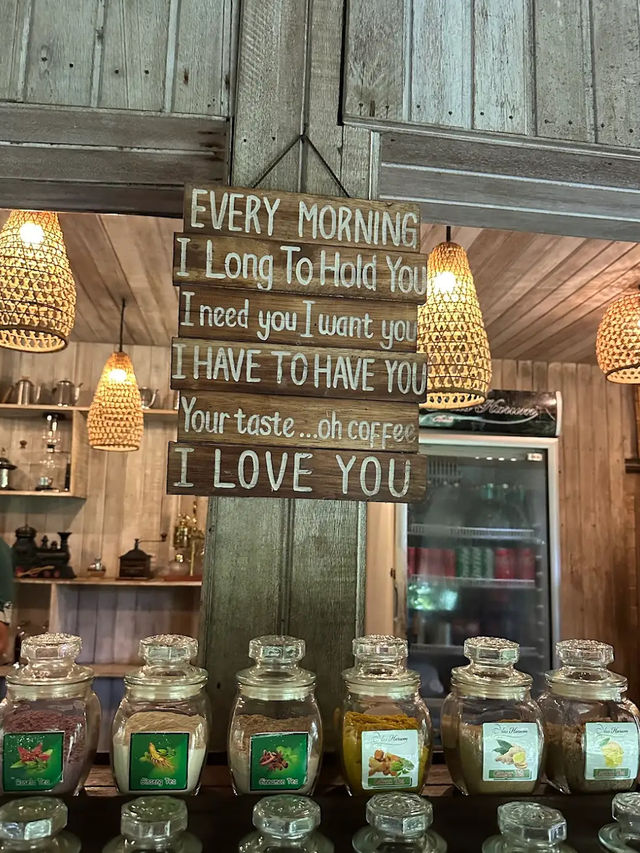 EVERY MORNING
I Long To Hold You
I need you I want you
I HAVE TO HAVE YOU
Your taste ...oh coffee
I LOVE YOU
Rosela Tea
Ginseng Tea
Cinnamon Tea